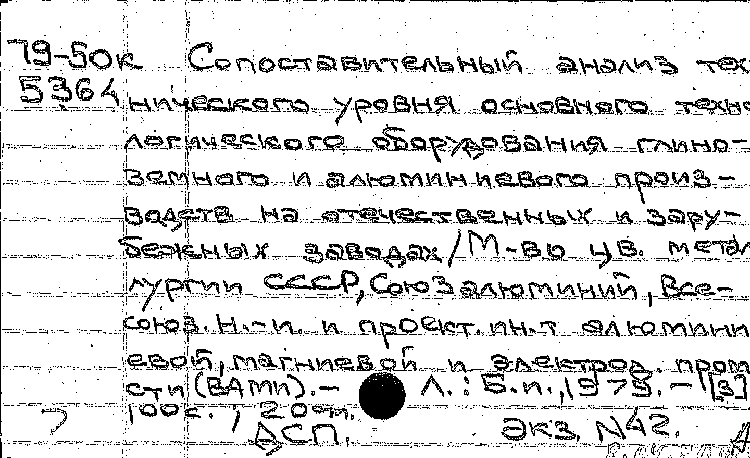 79-50к Сопоставительный анализ тех
5364 нического уровня основного техно
логического оборудования глино-
земного и алюминиевого произ-
водств на отечественных и зару-
бежных заводах/М-во цв. метал
лургии СССР, Союзалюминий, Все-
союз. н.-и. и проект. ин-т алюмини
евой, магниевой и электрод. пром
сти (ВАМИ). - Л.: Б.и., 1975. - [3]
100 с., 20 см.
ДСП. Экз. N42.